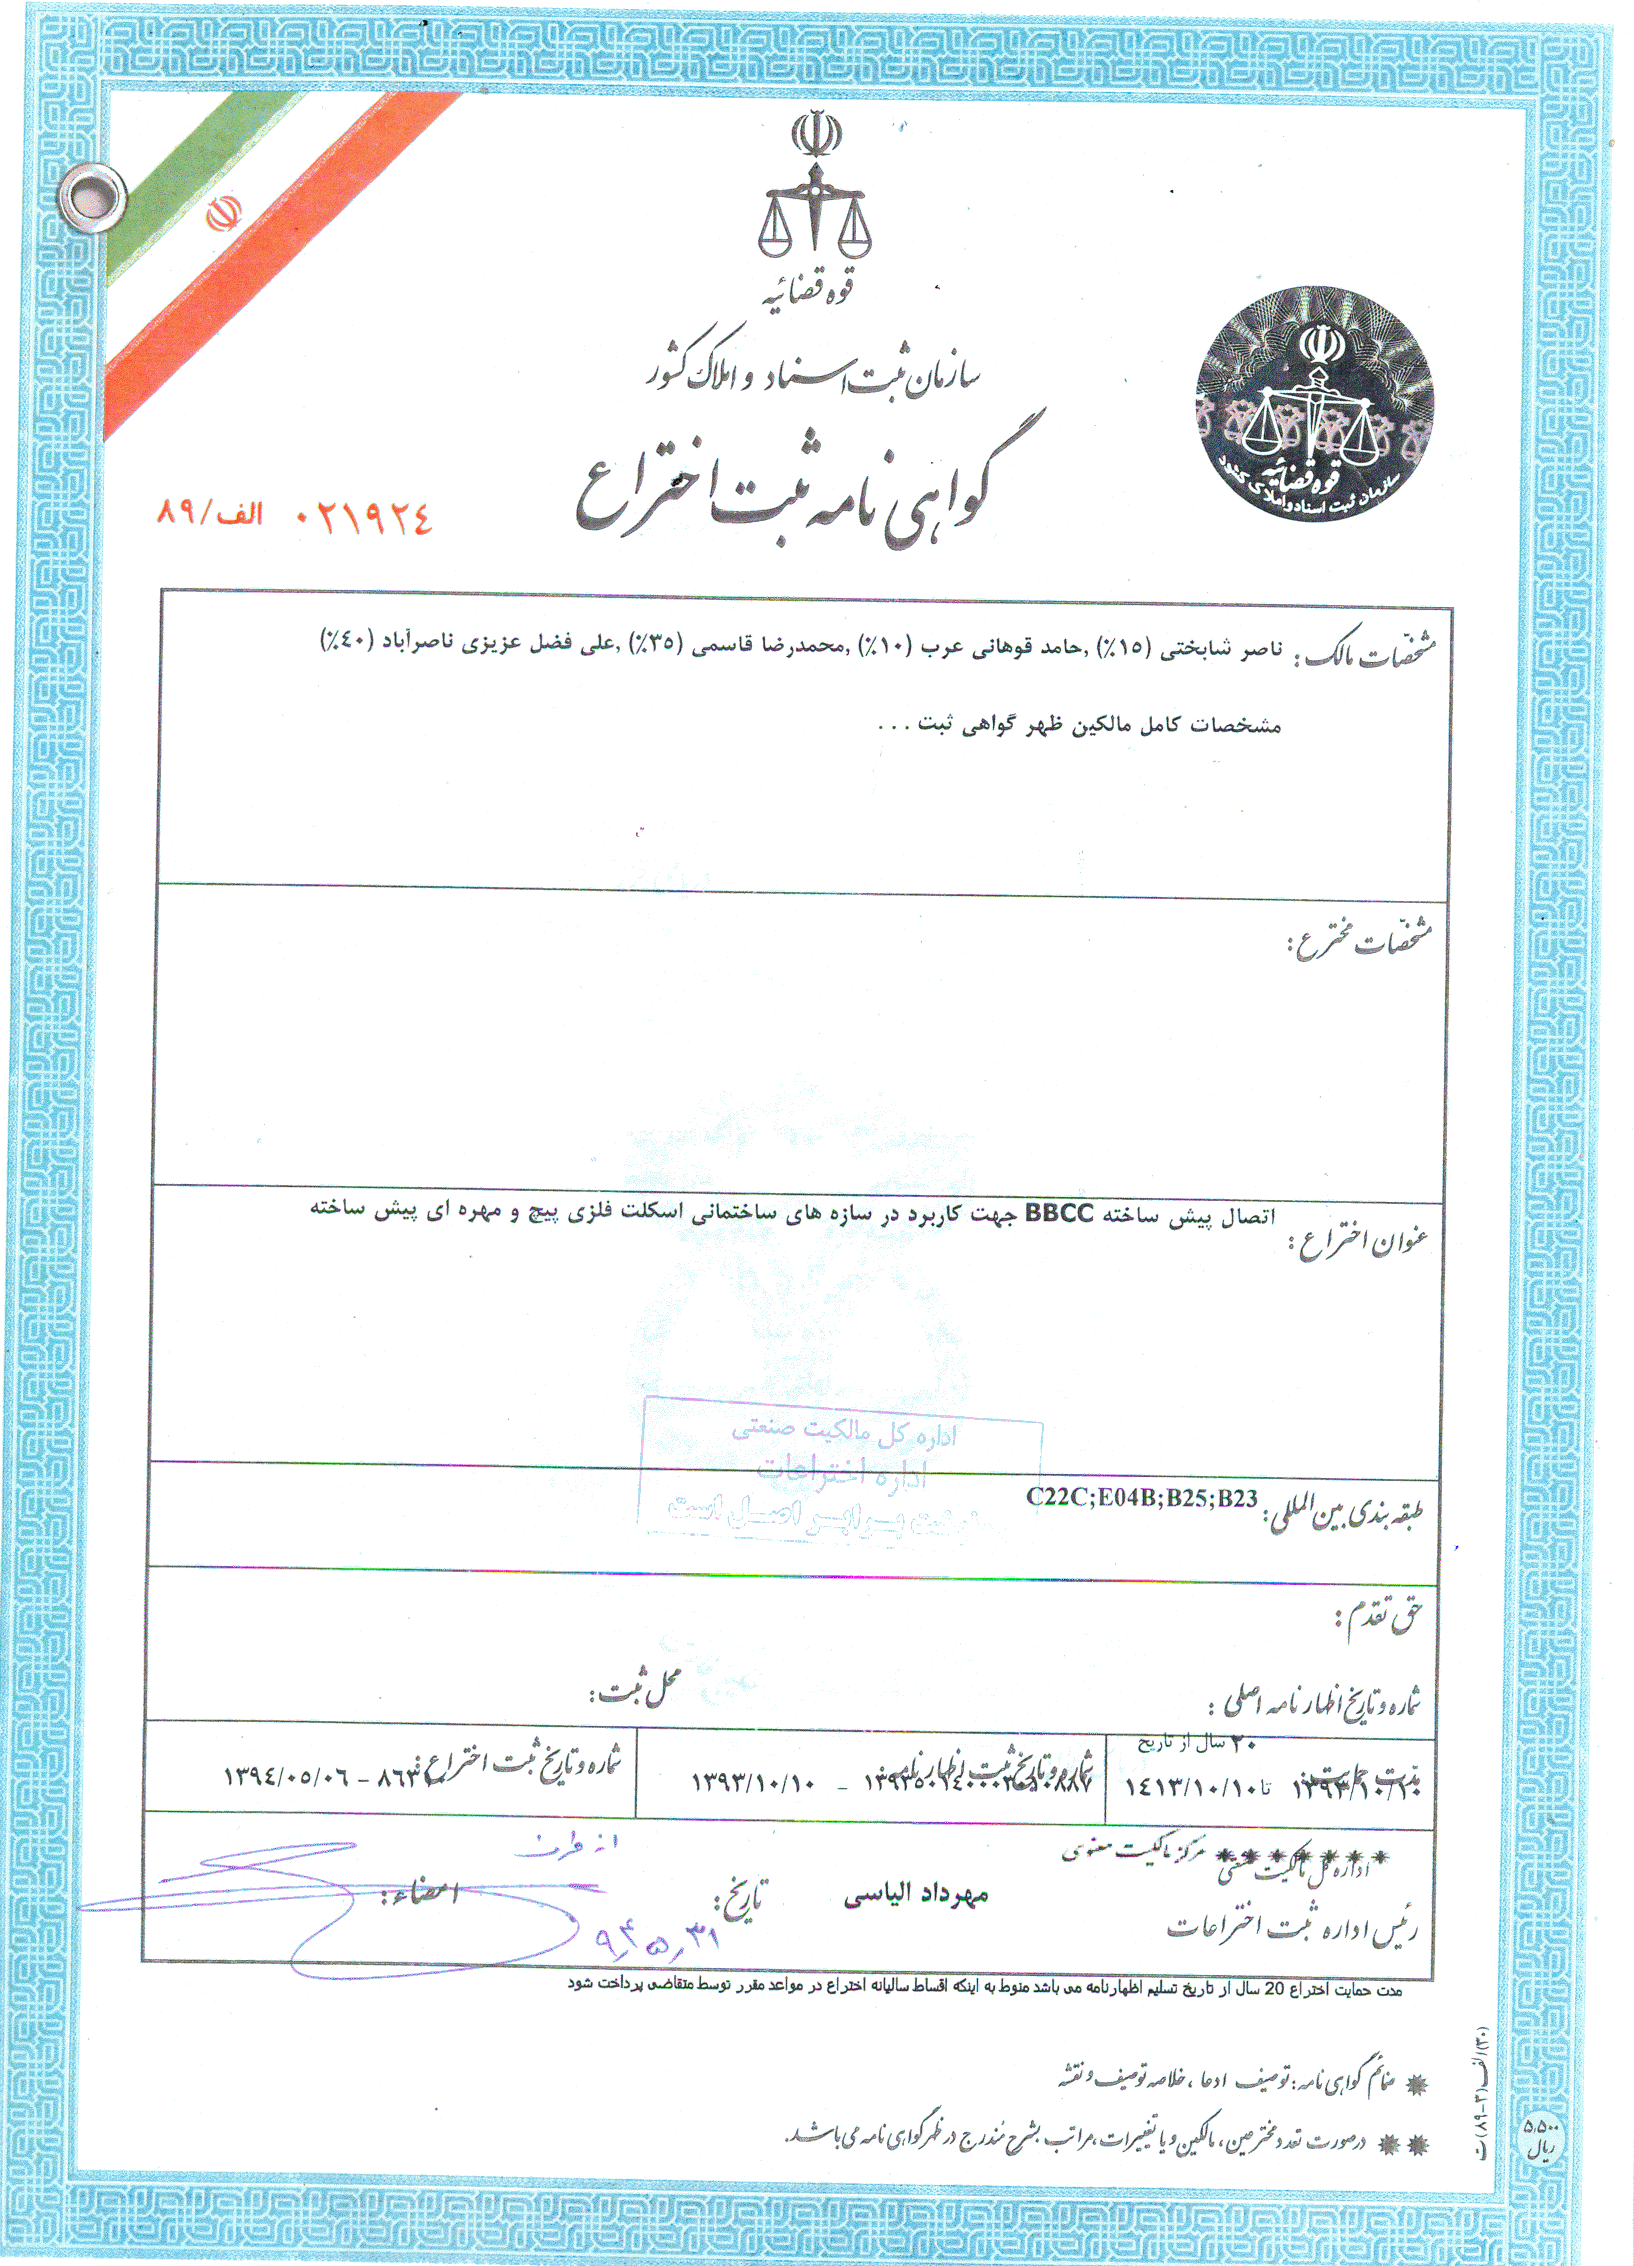 قوه قضائیه
سازمان ثبت اسناد و املاک کشور
گواهی نامه ثبت اختراع
۰۲۱۹۲٤ الف/۸۹
قوه قضائیه
سازمان ثبت اسناد و املاک کشور
مشخصّات مالک : ناصر شابختی (۱۵٪) ,حامد قوهانی عرب (۱۰٪) ,محمدرضا قاسمی (۳۵٪) ,علی فضل عزیزی ناصرآباد (۴۰٪)
مشخصات کامل مالکین ظهر گواهی ثبت . . .
مشخصّات مخترع :
عنوان اختراع : اتصال پیش ساخته BBCC جهت کاربرد در سازه های ساختمانی اسکلت فلزی پیچ و مهره ای پیش ساخته
اداره کل مالکیت صنعتی
اداره اختراعات
برابر اصل است
طبقه بندی بین المللی : C22C;E04B;B25;B23
حق تقدم :
شماره و تاریخ اظهارنامه اصلی : محل ثبت :
۲۰ سال از تاریخ
مدت حمایت : ۱۳۹۳/۱۰/۱۰ تا ۱٤۱۳/۱۰/۱۰
شماره و تاریخ ثبت اظهارنامه : - ۱۳۹۳/۱۰/۱۰
شماره و تاریخ ثبت اختراع : - ۱۳۹٤/۰۵/۰۶
مرکز مالکیت معنوی
اداره کل مالکیت صنعتی
رئیس اداره ثبت اختراعات مهرداد الیاسی تاریخ : ۹۴٫۵٫۳۱ امضاء :
از طرف
مدت حمایت اختراع 20 سال از تاریخ تسلیم اظهارنامه می باشد منوط به اینکه اقساط سالیانه اختراع در مواعد مقرر توسط متقاضی پرداخت شود
ضمائم گواهی نامه : توصیف ادعا ، خلاصه توصیف و نقشه
در صورت تعدد مخترعین ، مالکین و یا تغییرات ، مراتب بشرح مندرج در ظهر گواهی نامه می باشد.
۵٫۵۰۰
ریال